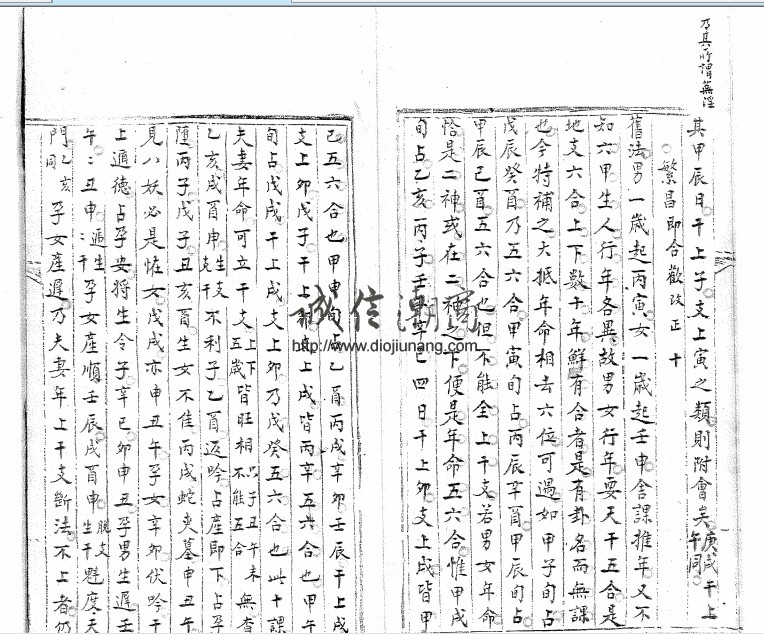 乃其所謂無淫
其甲辰日干上子支上寅之類則附會矣庚戌干上午同
繁昌即合歡改正十
舊法男一歲起丙寅女一歲起壬申舍課推年又不
知六甲生人行年各異故男女行年要天干五合是
地支六合上下數十年鮮有合者是有卦名而無課
也今特補之大抵年命相去六位可過如甲子旬占
戊辰癸酉乃五六合甲寅旬占丙辰辛酉甲辰旬占
甲辰己酉五六合也但不能全上干支若男女年命
恰是二神或在二神之下便是年命五六合惟甲戌
旬占乙亥丙子壬辛巳四日干上卯支上戌皆甲
己五六合也甲申旬乙酉丙戌辛卯壬辰干上戌
支上卯戊子干上支上戌皆丙辛五六合也甲午
旬占戊戌干上戌支上卯乃戊癸五六合也此十課
夫妻年命可立干支上下五歲皆旺相不能五合以子丑午未無酉
乙亥戌酉申生支克干不利子乙酉返吟占產即下占孕
墮丙子戊子丑亥酉生女不佳丙戌蛇夾墓申丑午
見八妖必是怪女戊戌亦申丑午孕女辛卯伏吟干
上遁德占孕安將生令子辛巳卯申丑孕男生遲壬
午丑申遁生干孕女產順壬辰戌酉申脫支生干魁度天
門乙亥同孕女產遲乃夫妻年上干支斷法不上者仍
誠信潮商
http://www.diojiunang.com